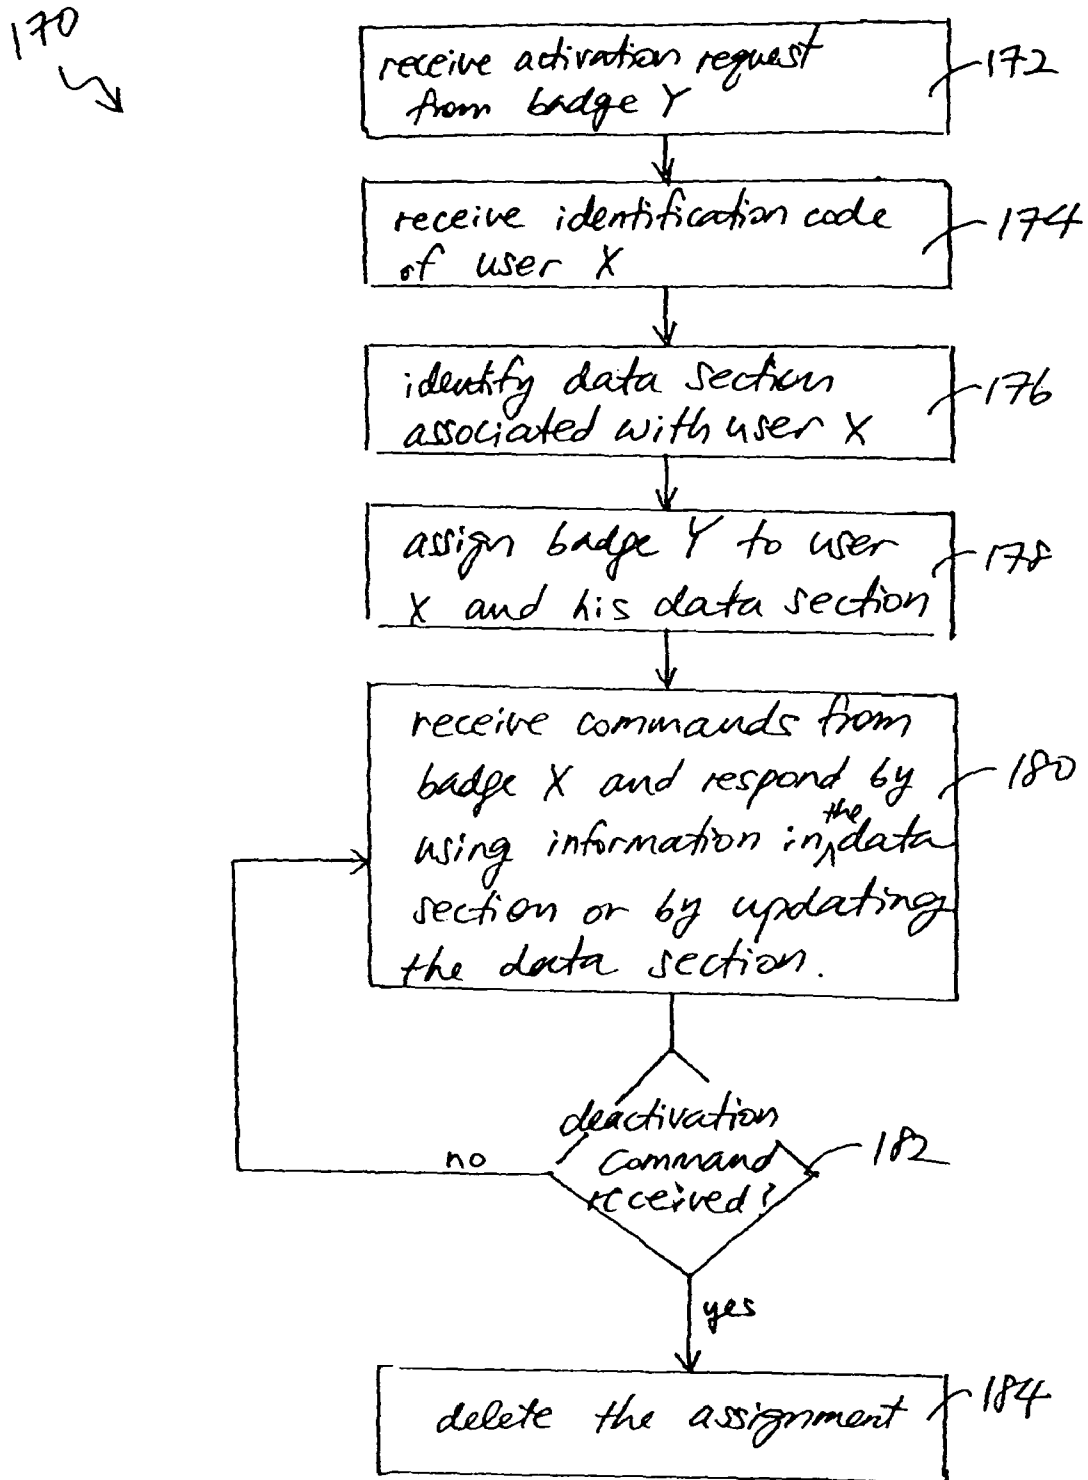 170
receive activation request
from badge Y
172
receive identification code
of user X
174
identify data section
associated with user X
176
assign badge Y to user
X and his data section
178
receive commands from
badge X and respond by
using information in the data
section or by updating
the data section.
180
deactivation
command
received?
182
no
yes
delete the assignment
184